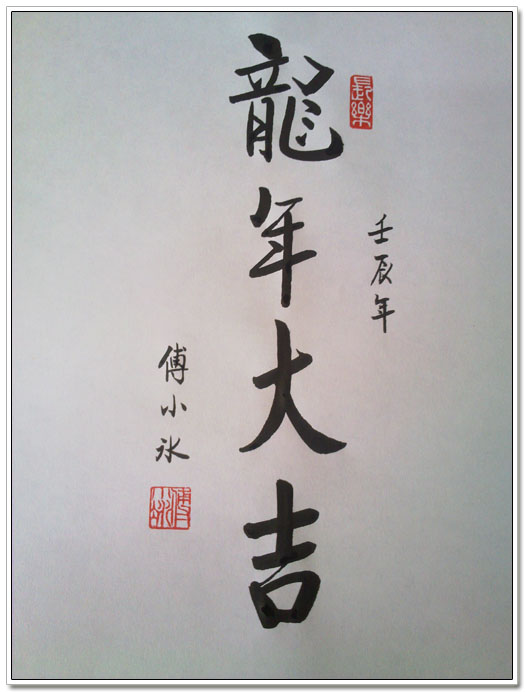 長樂
壬辰年
龍年大吉
傅小冰